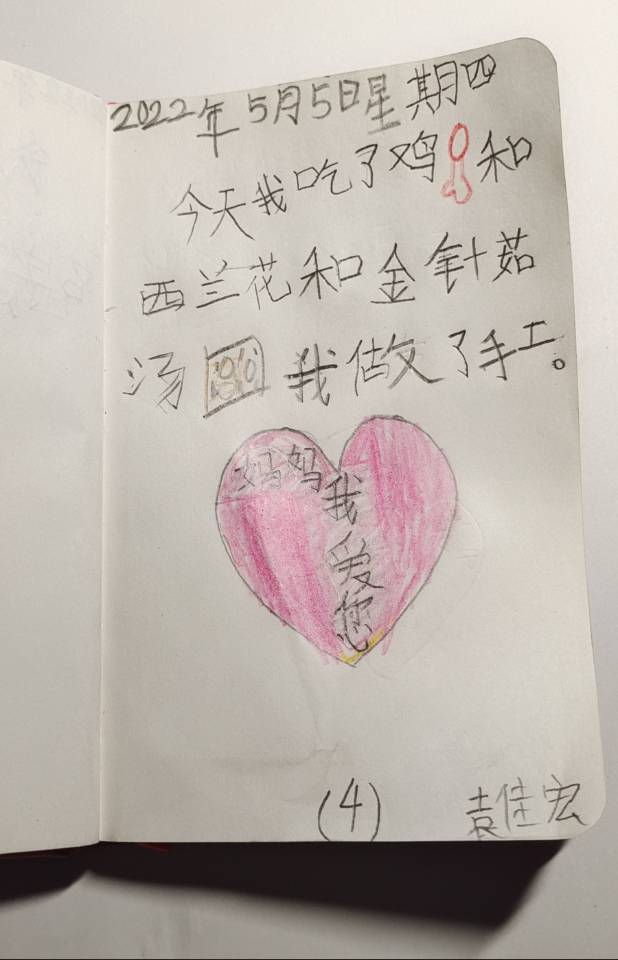 2022年5月5日星期四
今天我吃了鸡和
西兰花和金针茹
汤 我做了手工。
妈妈我爱您
(4) 袁佳宏